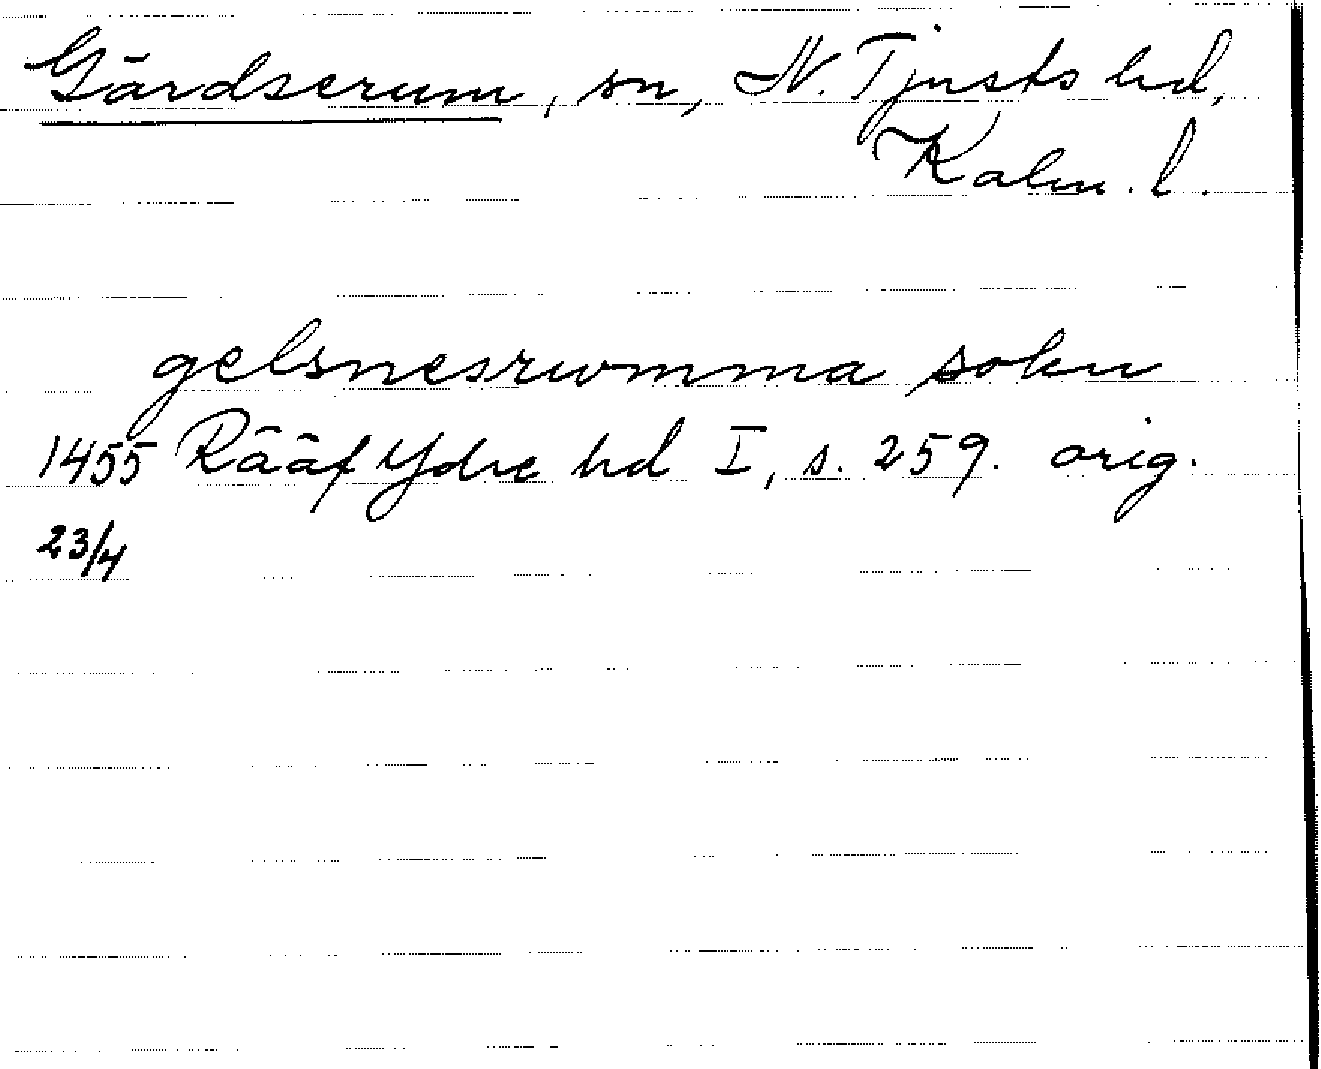 Gärdserum, sn, N. Tjusts hd,
Kalm. l.
gelsnesrwmma sokn
1455 Rääf Ydre hd I, s. 259. orig.
23/4